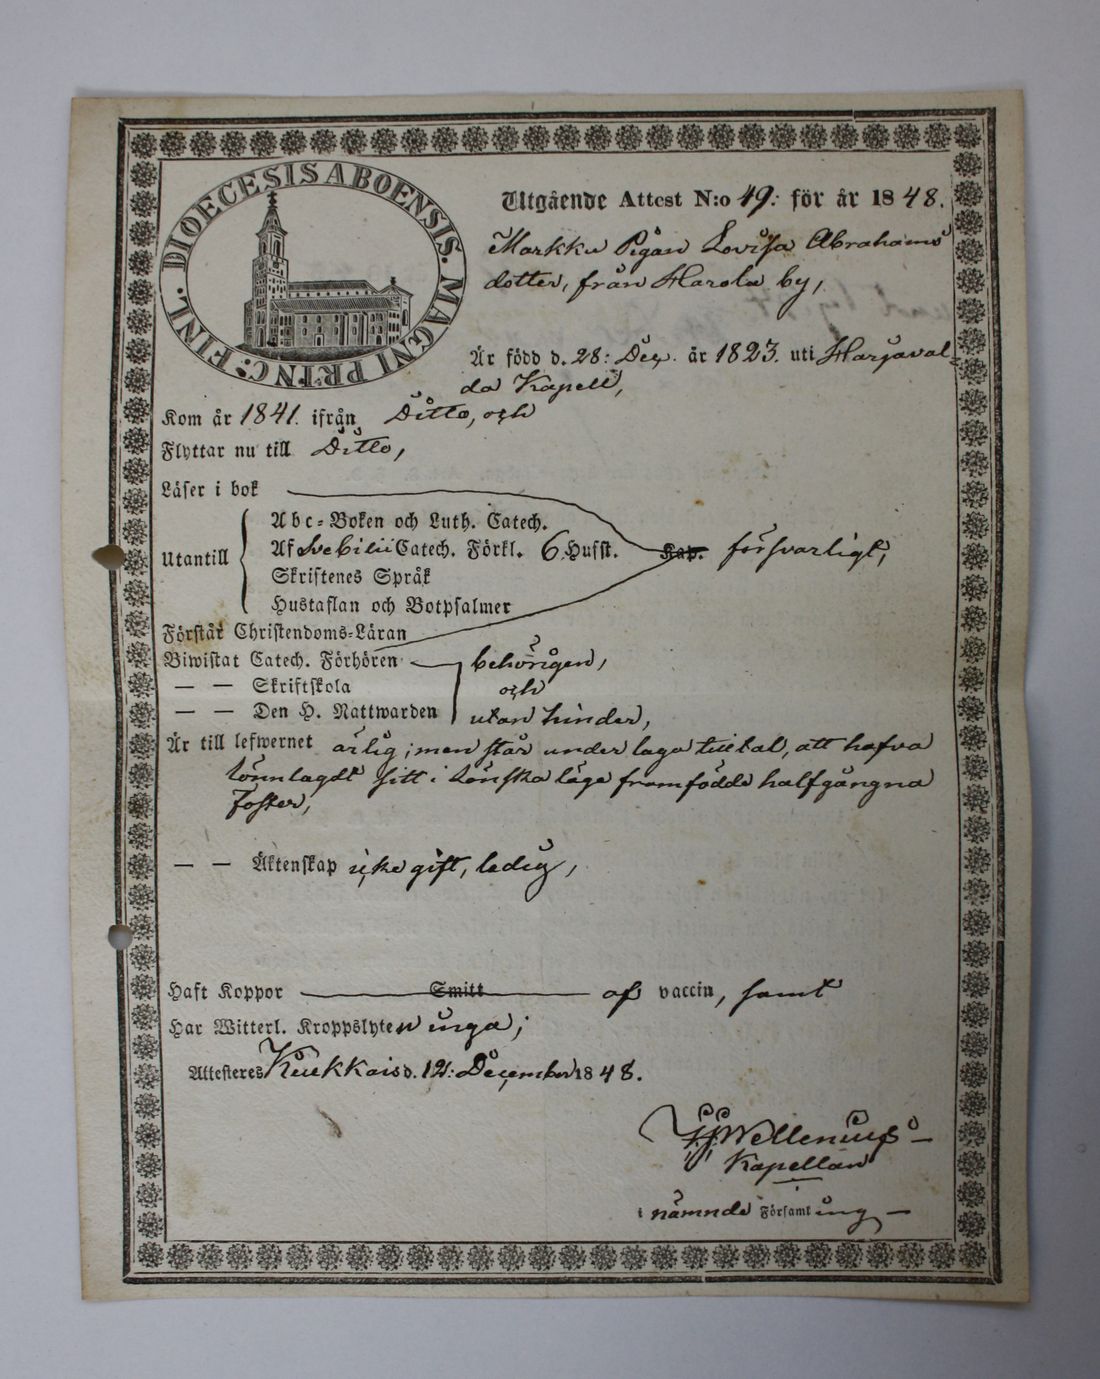 DIOECESIS ABOENSIS. MAGNI PRINC: FINL.
Utgående Attest N:o 49: för år 1848.
Markku Pigan Lovisa Abrahams
dotter, från Harola by,
Är född d. 28: Dec. år 1823. uti Harjaval=
da Kapell,
Kom år 1841. ifrån Ditto, och
Flyttar nu till Ditto,
Läser i bok
Abc=Boken och Luth. Catech.
Utantill Af Svebilii Catech. Förkl. 6. Hufst. Kap. försvarligt,
Skriftenes Språk
Hustaflan och Botpsalmer
Förstår Christendoms=Läran
Biwistat Catech. Förhören behörigen,
— — Skriftskola och
— — Den H. Nattwarden utan hinder,
Är till lefwernet ärlig; men står under laga tilltal, att hafva
lönnlagdt sitt i lönska läge framfödde halfgångna
foster,
— — Äktenskap icke gift, ledig,
Haft Koppor Smitt af vaccin, samt
Har Witterl. Kroppslyten inga;
Attesteres Kiukkais d. 12: December 1848.
Wellenius
Kapellan
i nämnde Församling